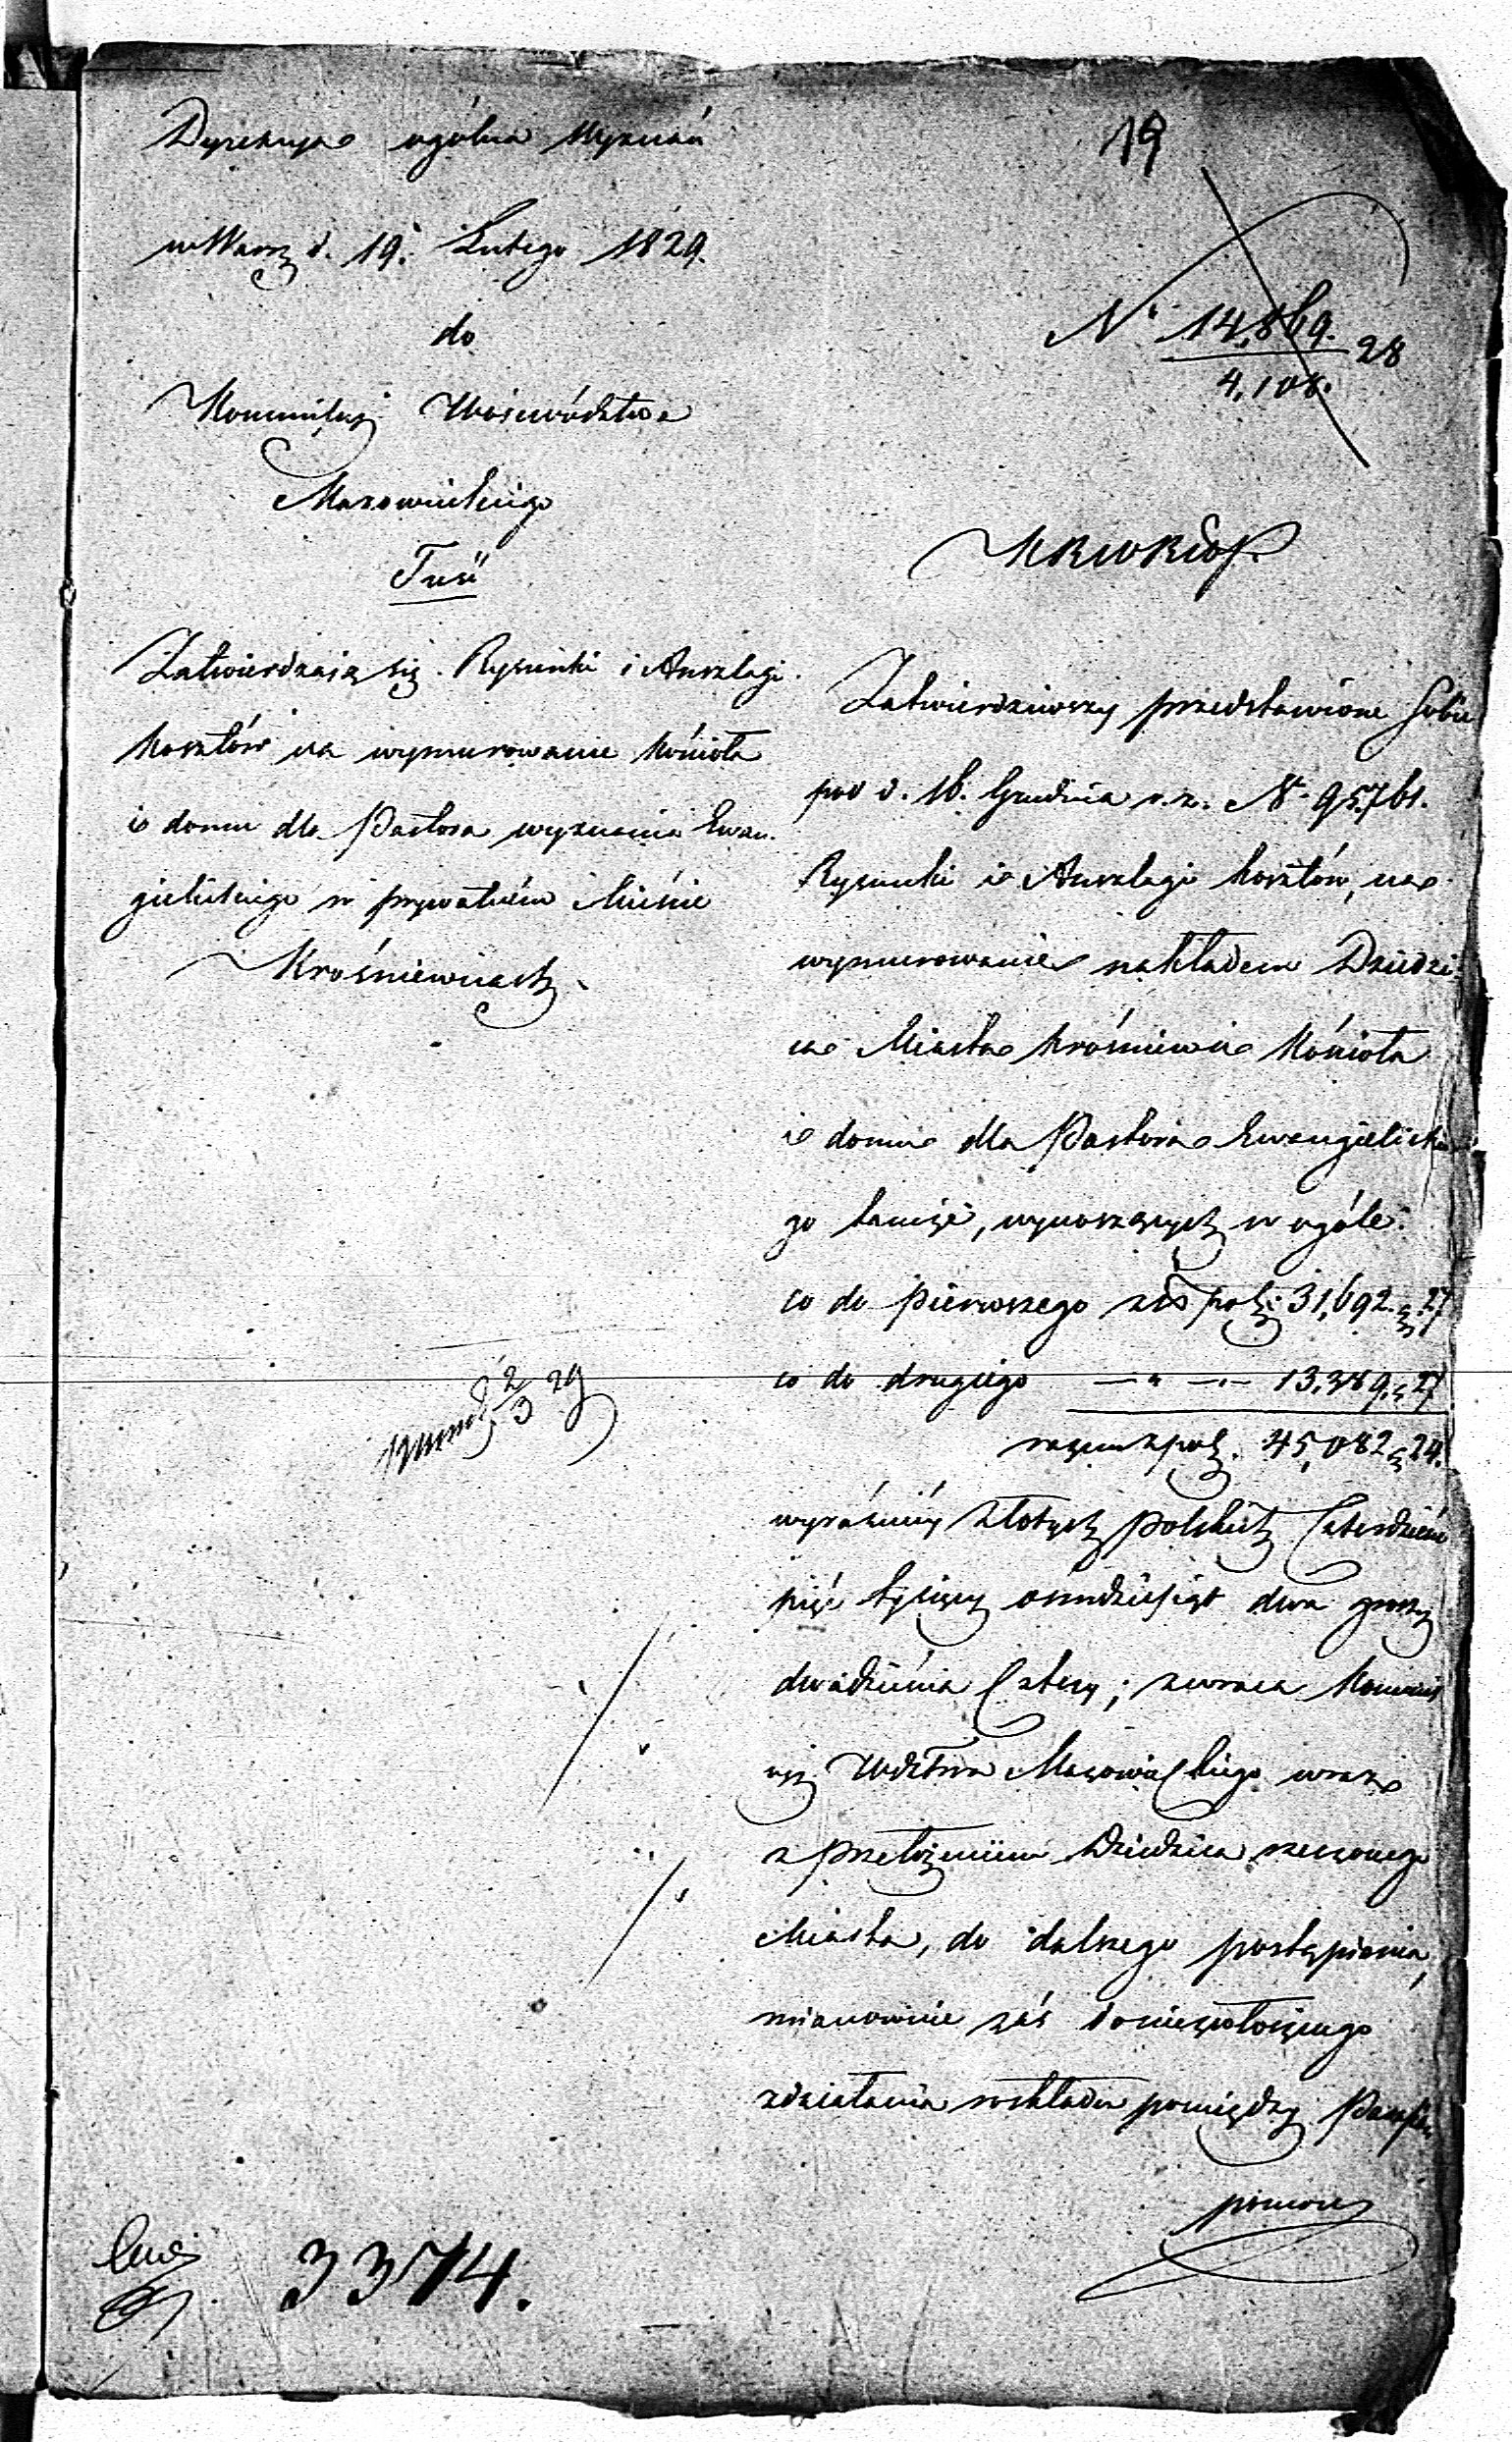 Dyrekcya ogólna Wyznań
w Warsz d. 19. Lutego 1829.
do
Kommissyi Województwa
Mazowieckiego
Treść
Zatwierdzają się Rysunki i Anszlagi
kosztów na wymurowanie kościoła
i domu dla Pastora wyznania Ewan-
gielickiego w prywatném Mieście
Krośniewicach.
19
No 14,869. 28
4,108.
KRWRiOP.
Zatwierdziwszy przedstawione Sobie
pod d. 16. Grudnia r. z. No 95761.
Rysunki i Anszlagi kosztów, na
wymurowanie nakładem Dziedzi-
ca Miasta Krośniewic Kościoła
i domu dla Pastora Ewangielickie
go tamże, wynoszących w ogóle:
co do pierwszego złp pol: 31,692. g 27
co do drugiego — " — " — 13,389. g 27
razem z pol. 45,082 g 24.
wyraźniéy złotych polskich Czterdzieści
pięć tysięcy ośmdziesiąt dwa groszy
dwadzieścia Cztery; zwraca Kommis
syi Wdztwa Mazowieckiego wraz
z przełożeniem Dziedzica rzeczonego
Miasta, do dalszego postąpienia,
mianowicie zaś
zdziałania rozkładu pomiędzy
pomoc
2/3 29
3374.